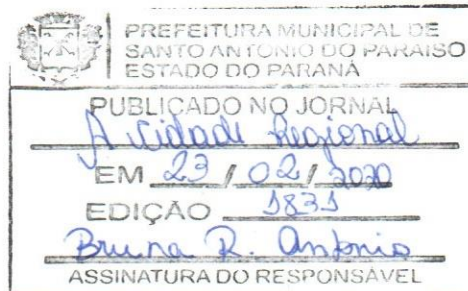 PREFEITURA MUNICIPAL DE
SANTO ANTONIO DO PARAISO
ESTADO DO PARANÁ
PUBLICADO NO JORNAL
A Cidade Regional
EM 23 / 02 / 2020
EDIÇÃO 1831
Bruna R. Antonio
ASSINATURA DO RESPONSÁVEL